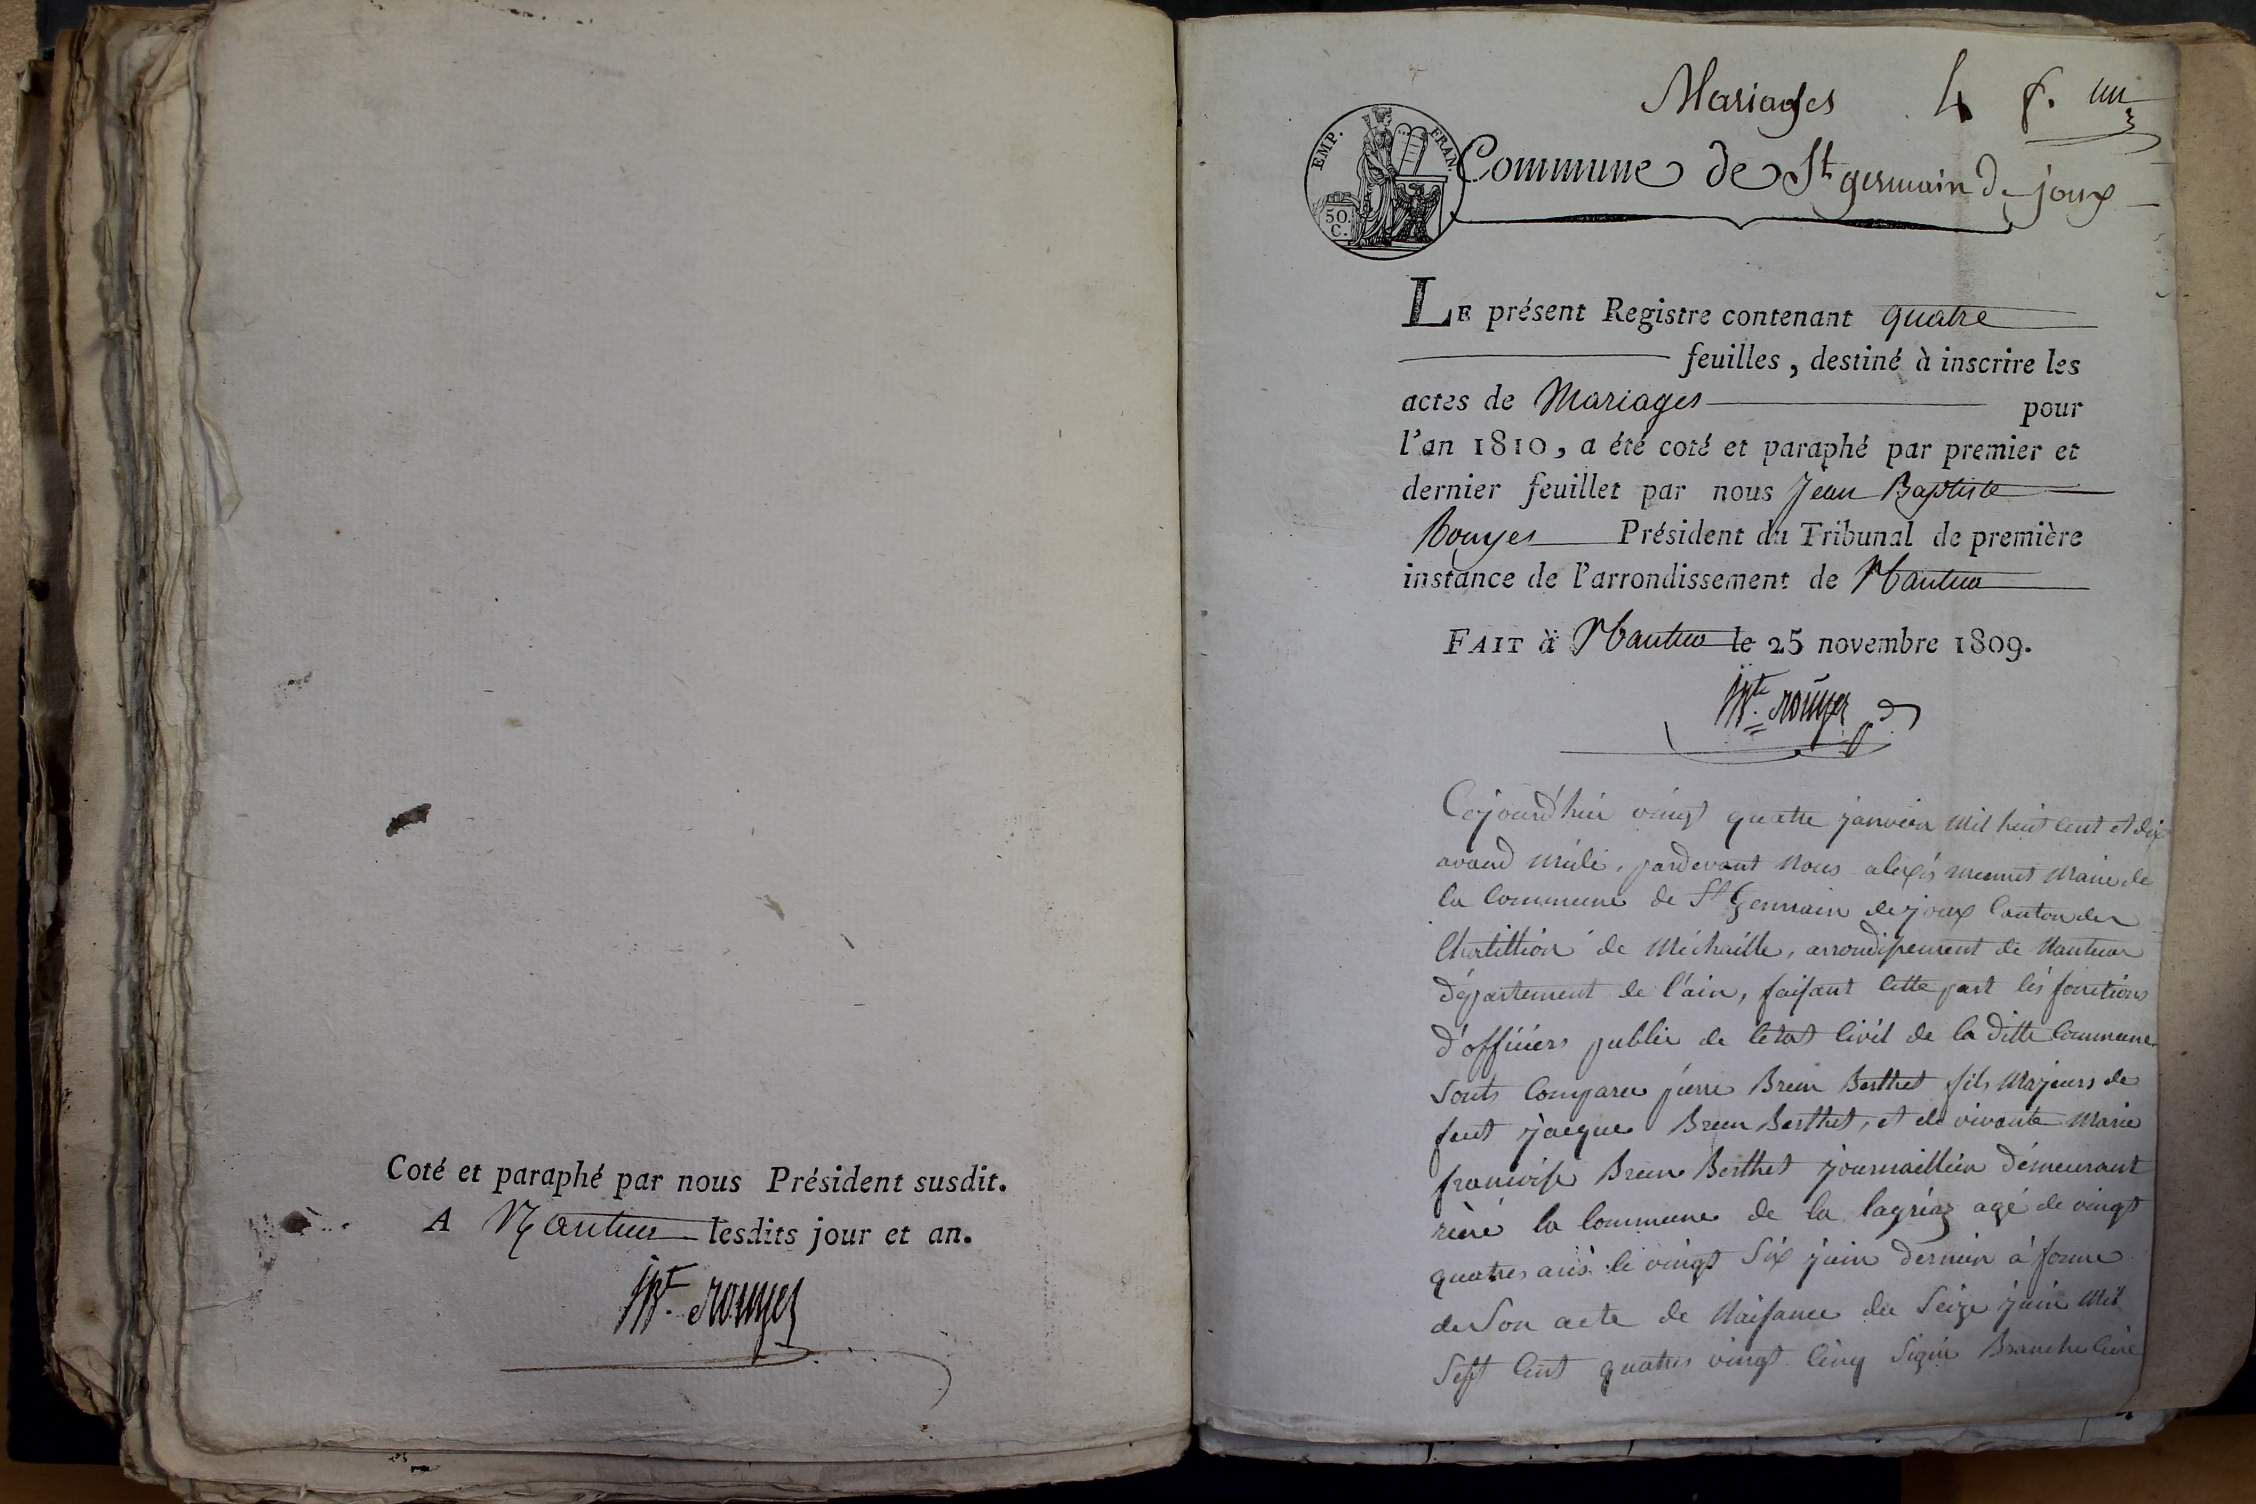 Coté et paraphé par nous Président susdit.
A Nantua lesdits jour et an.
JBte Rouyer
Mariages 4 f. un
EMP. FRAN.
50.
C.
Commune de St germain de joux
LE présent Registre contenant quatre
feuilles, destiné à inscrire les
actes de Mariages pour
l'an 1810, a été coté et paraphé par premier et
dernier feuillet par nous Jean Baptiste
Rouyer Président du Tribunal de première
instance de l'arrondissement de Nantua
FAIT à Nantua le 25 novembre 1809.
JBte Rouyer
Cejourd'hui vingt quattre janvier mil huit cent et dix
avand midi, pardevant nous alexis mermet maire de
la Commune de St Germain de joux Canton de
Chatillion de Michaille, arrondissement de Nantua
département de l'ain, faisant cette part les fonctions
d'officiers public de letat Civil de la ditte Commune
Sonts Comparu pierre Brun Berthet fils Majeurs de
feut jacque Brun Berthet, et de vivante Marie
francoise Brun Berthet journaillier demeurant
rière la Commune de la agé de vingt
quatres ans le vingt Six juin dernier à forme
de Son acte de Naissance du Seize juin Mil
Sept Cent quatres vingt Cinq Signé